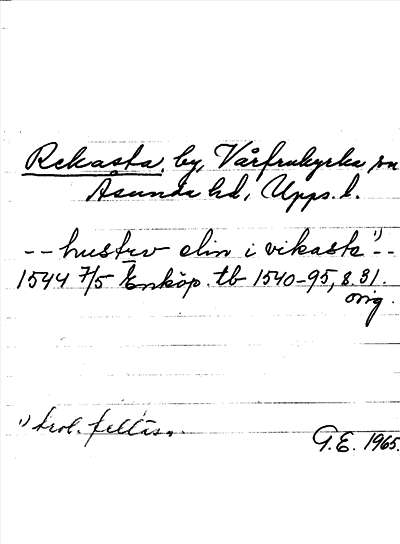 Rekasta, by, Vårfrukyrka sn
Åsunda hd, Upps. l.
-- hustrv elin i vikasta ¹) --
1544 7/5 Enköp. tb 1540-95, s. 31.
orig.
¹) trol. felläsn.
G.E. 1965.